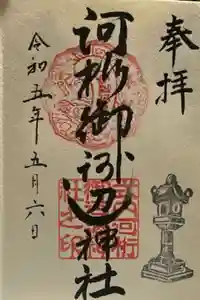 奉拝
河桁御河辺神社
令和五年五月六日